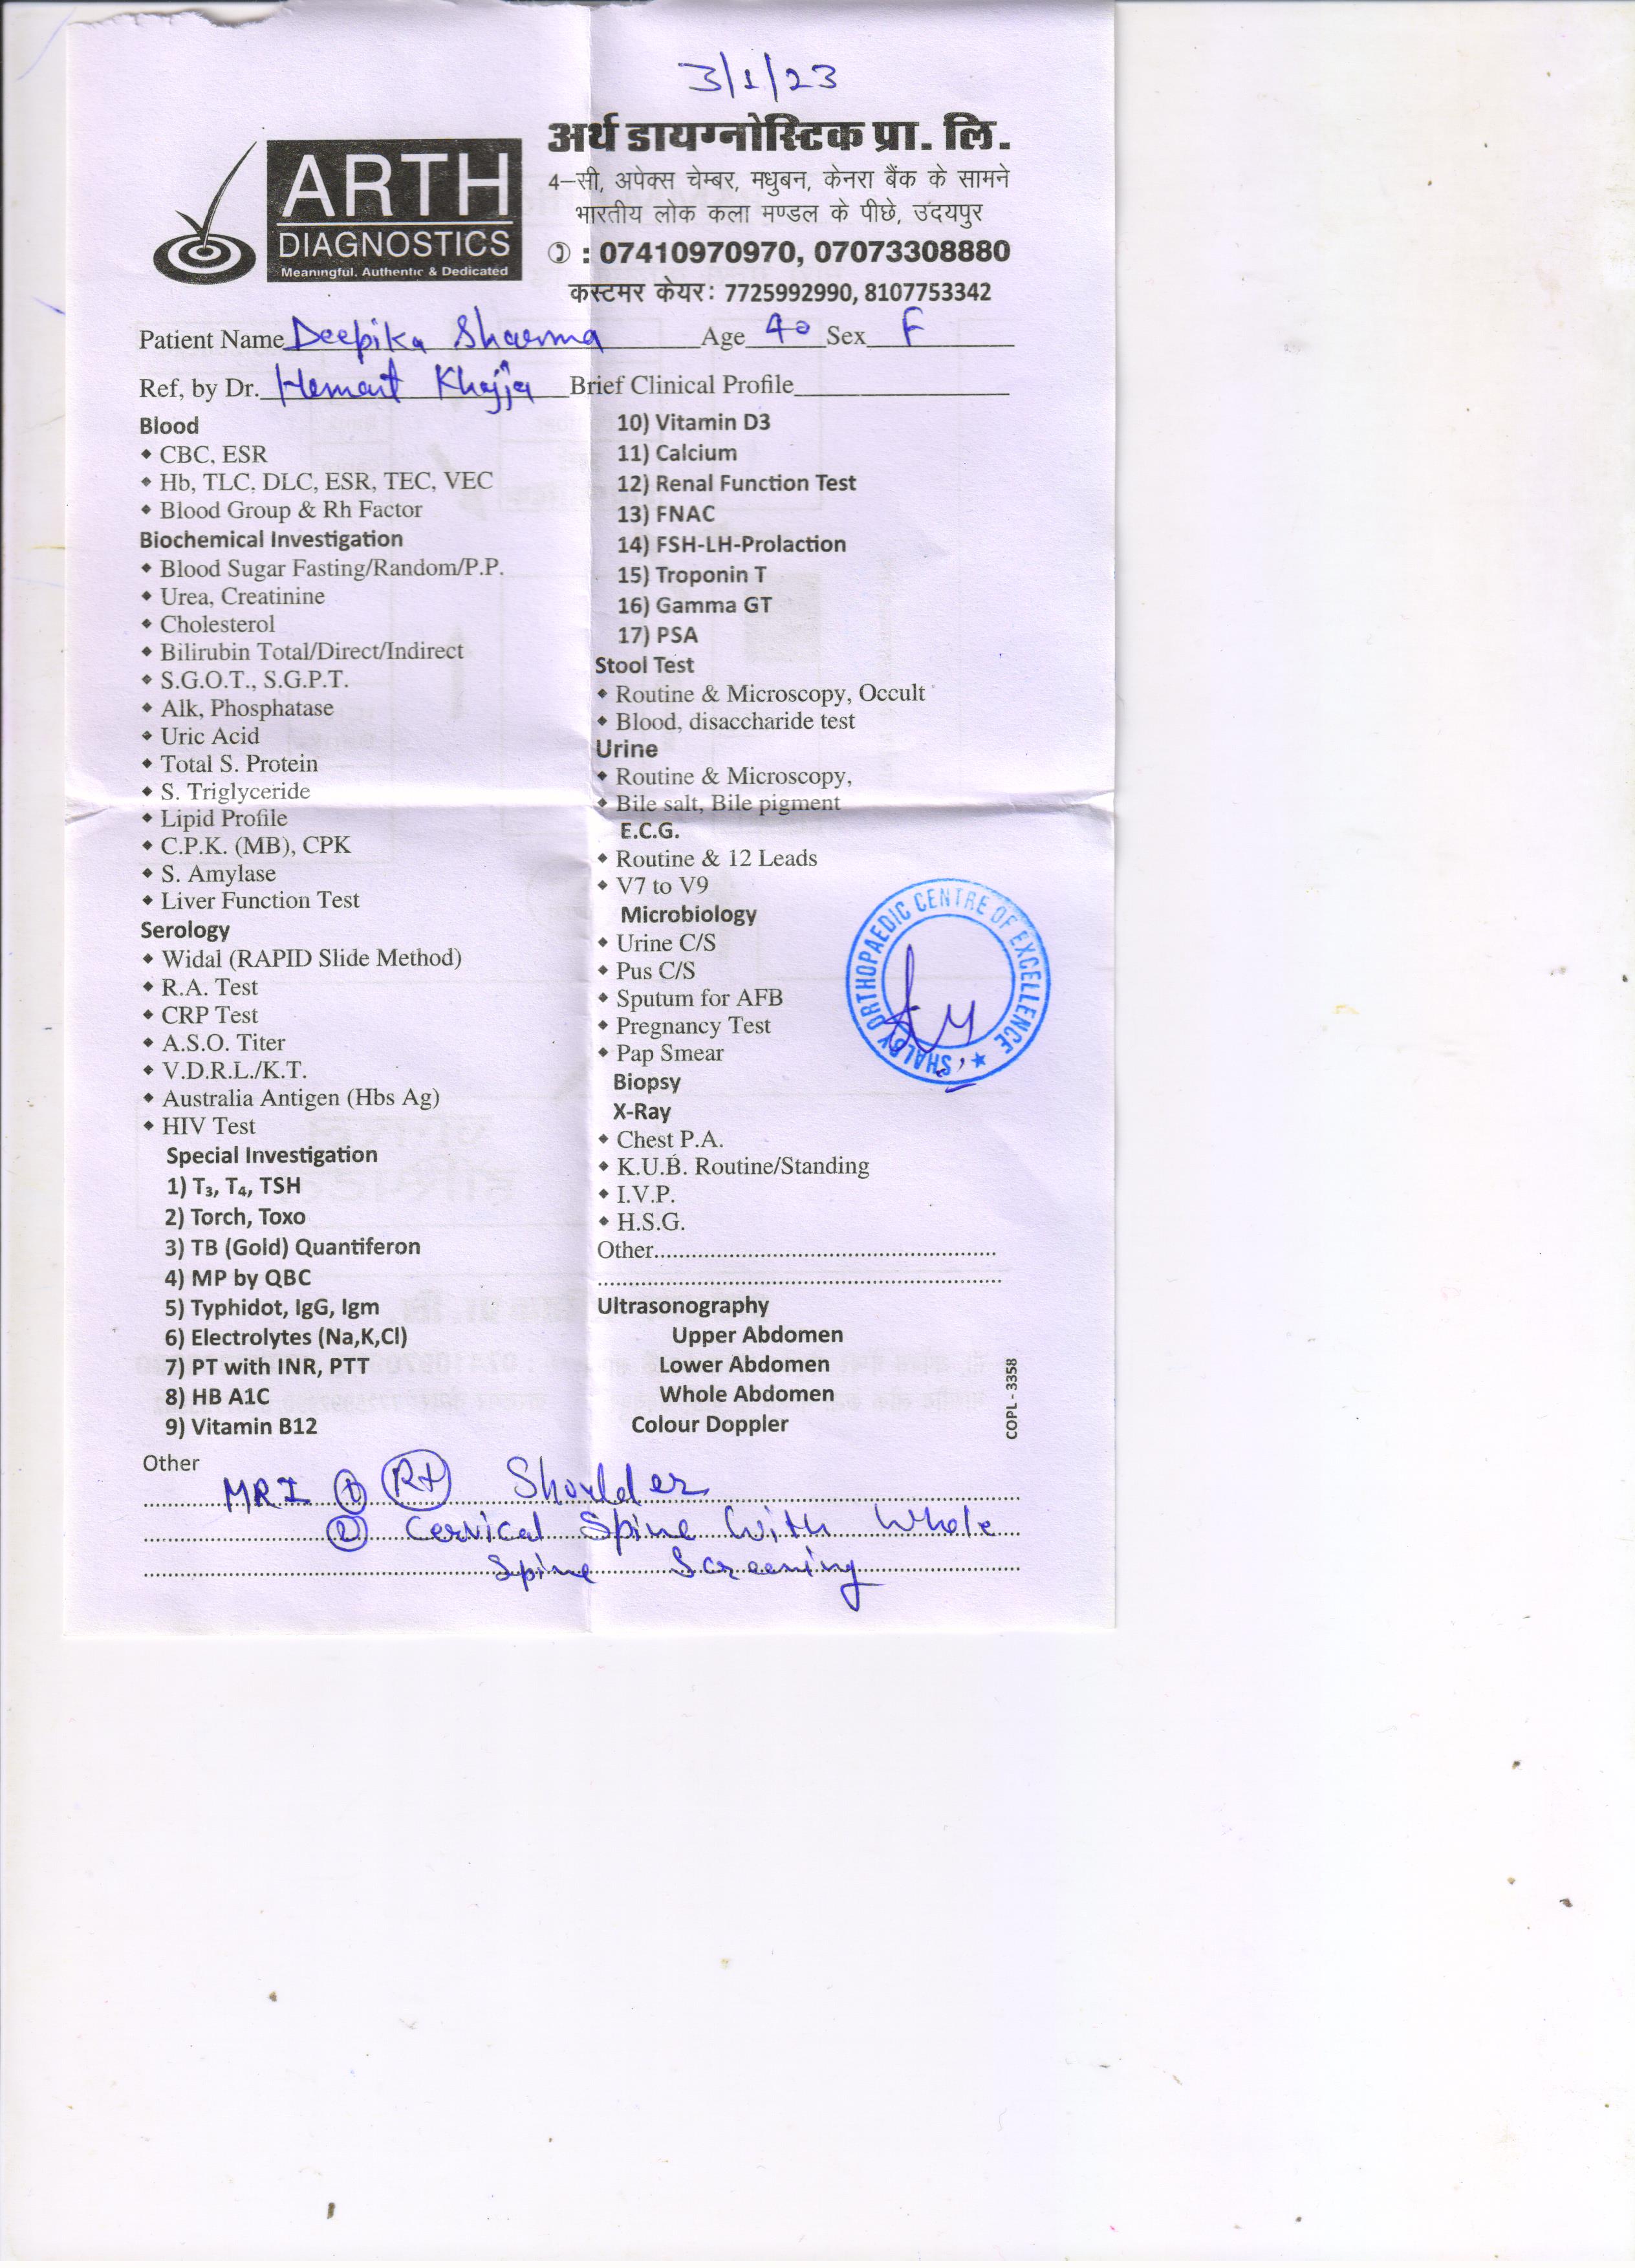 3/1/23
ARTH
DIAGNOSTICS
Meaningful, Authentic & Dedicated
अर्थ डायग्नोस्टिक प्रा. लि.
4–सी, अपेक्स चेम्बर, मधुबन, केनरा बैंक के सामने
भारतीय लोक कला मण्डल के पीछे, उदयपुर
✆ : 07410970970, 07073308880
कस्टमर केयर: 7725992990, 8107753342
Patient Name Deepika Sharma Age 40 Sex F
Ref, by Dr. Hemant Khajja Brief Clinical Profile
Blood
◆ CBC, ESR
◆ Hb, TLC, DLC, ESR, TEC, VEC
◆ Blood Group & Rh Factor
Biochemical Investigation
◆ Blood Sugar Fasting/Random/P.P.
◆ Urea, Creatinine
◆ Cholesterol
◆ Bilirubin Total/Direct/Indirect
◆ S.G.O.T., S.G.P.T.
◆ Alk, Phosphatase
◆ Uric Acid
◆ Total S. Protein
◆ S. Triglyceride
◆ Lipid Profile
◆ C.P.K. (MB), CPK
◆ S. Amylase
◆ Liver Function Test
Serology
◆ Widal (RAPID Slide Method)
◆ R.A. Test
◆ CRP Test
◆ A.S.O. Titer
◆ V.D.R.L./K.T.
◆ Australia Antigen (Hbs Ag)
◆ HIV Test
Special Investigation
1) T₃, T₄, TSH
2) Torch, Toxo
3) TB (Gold) Quantiferon
4) MP by QBC
5) Typhidot, IgG, Igm
6) Electrolytes (Na,K,Cl)
7) PT with INR, PTT
8) HB A1C
9) Vitamin B12
10) Vitamin D3
11) Calcium
12) Renal Function Test
13) FNAC
14) FSH-LH-Prolaction
15) Troponin T
16) Gamma GT
17) PSA
Stool Test
◆ Routine & Microscopy, Occult
◆ Blood, disaccharide test
Urine
◆ Routine & Microscopy,
◆ Bile salt, Bile pigment
E.C.G.
◆ Routine & 12 Leads
◆ V7 to V9
Microbiology
◆ Urine C/S
◆ Pus C/S
◆ Sputum for AFB
◆ Pregnancy Test
◆ Pap Smear
Biopsy
X-Ray
◆ Chest P.A.
◆ K.U.B. Routine/Standing
◆ I.V.P.
◆ H.S.G.
Other
Ultrasonography
Upper Abdomen
Lower Abdomen
Whole Abdomen
Colour Doppler
SHALBY ORTHOPAEDIC CENTRE OF EXCELLENCE ★
COPL - 3358
Other
MRI ① Rt Shoulder
② Cervical Spine With Whole
Spine Screening